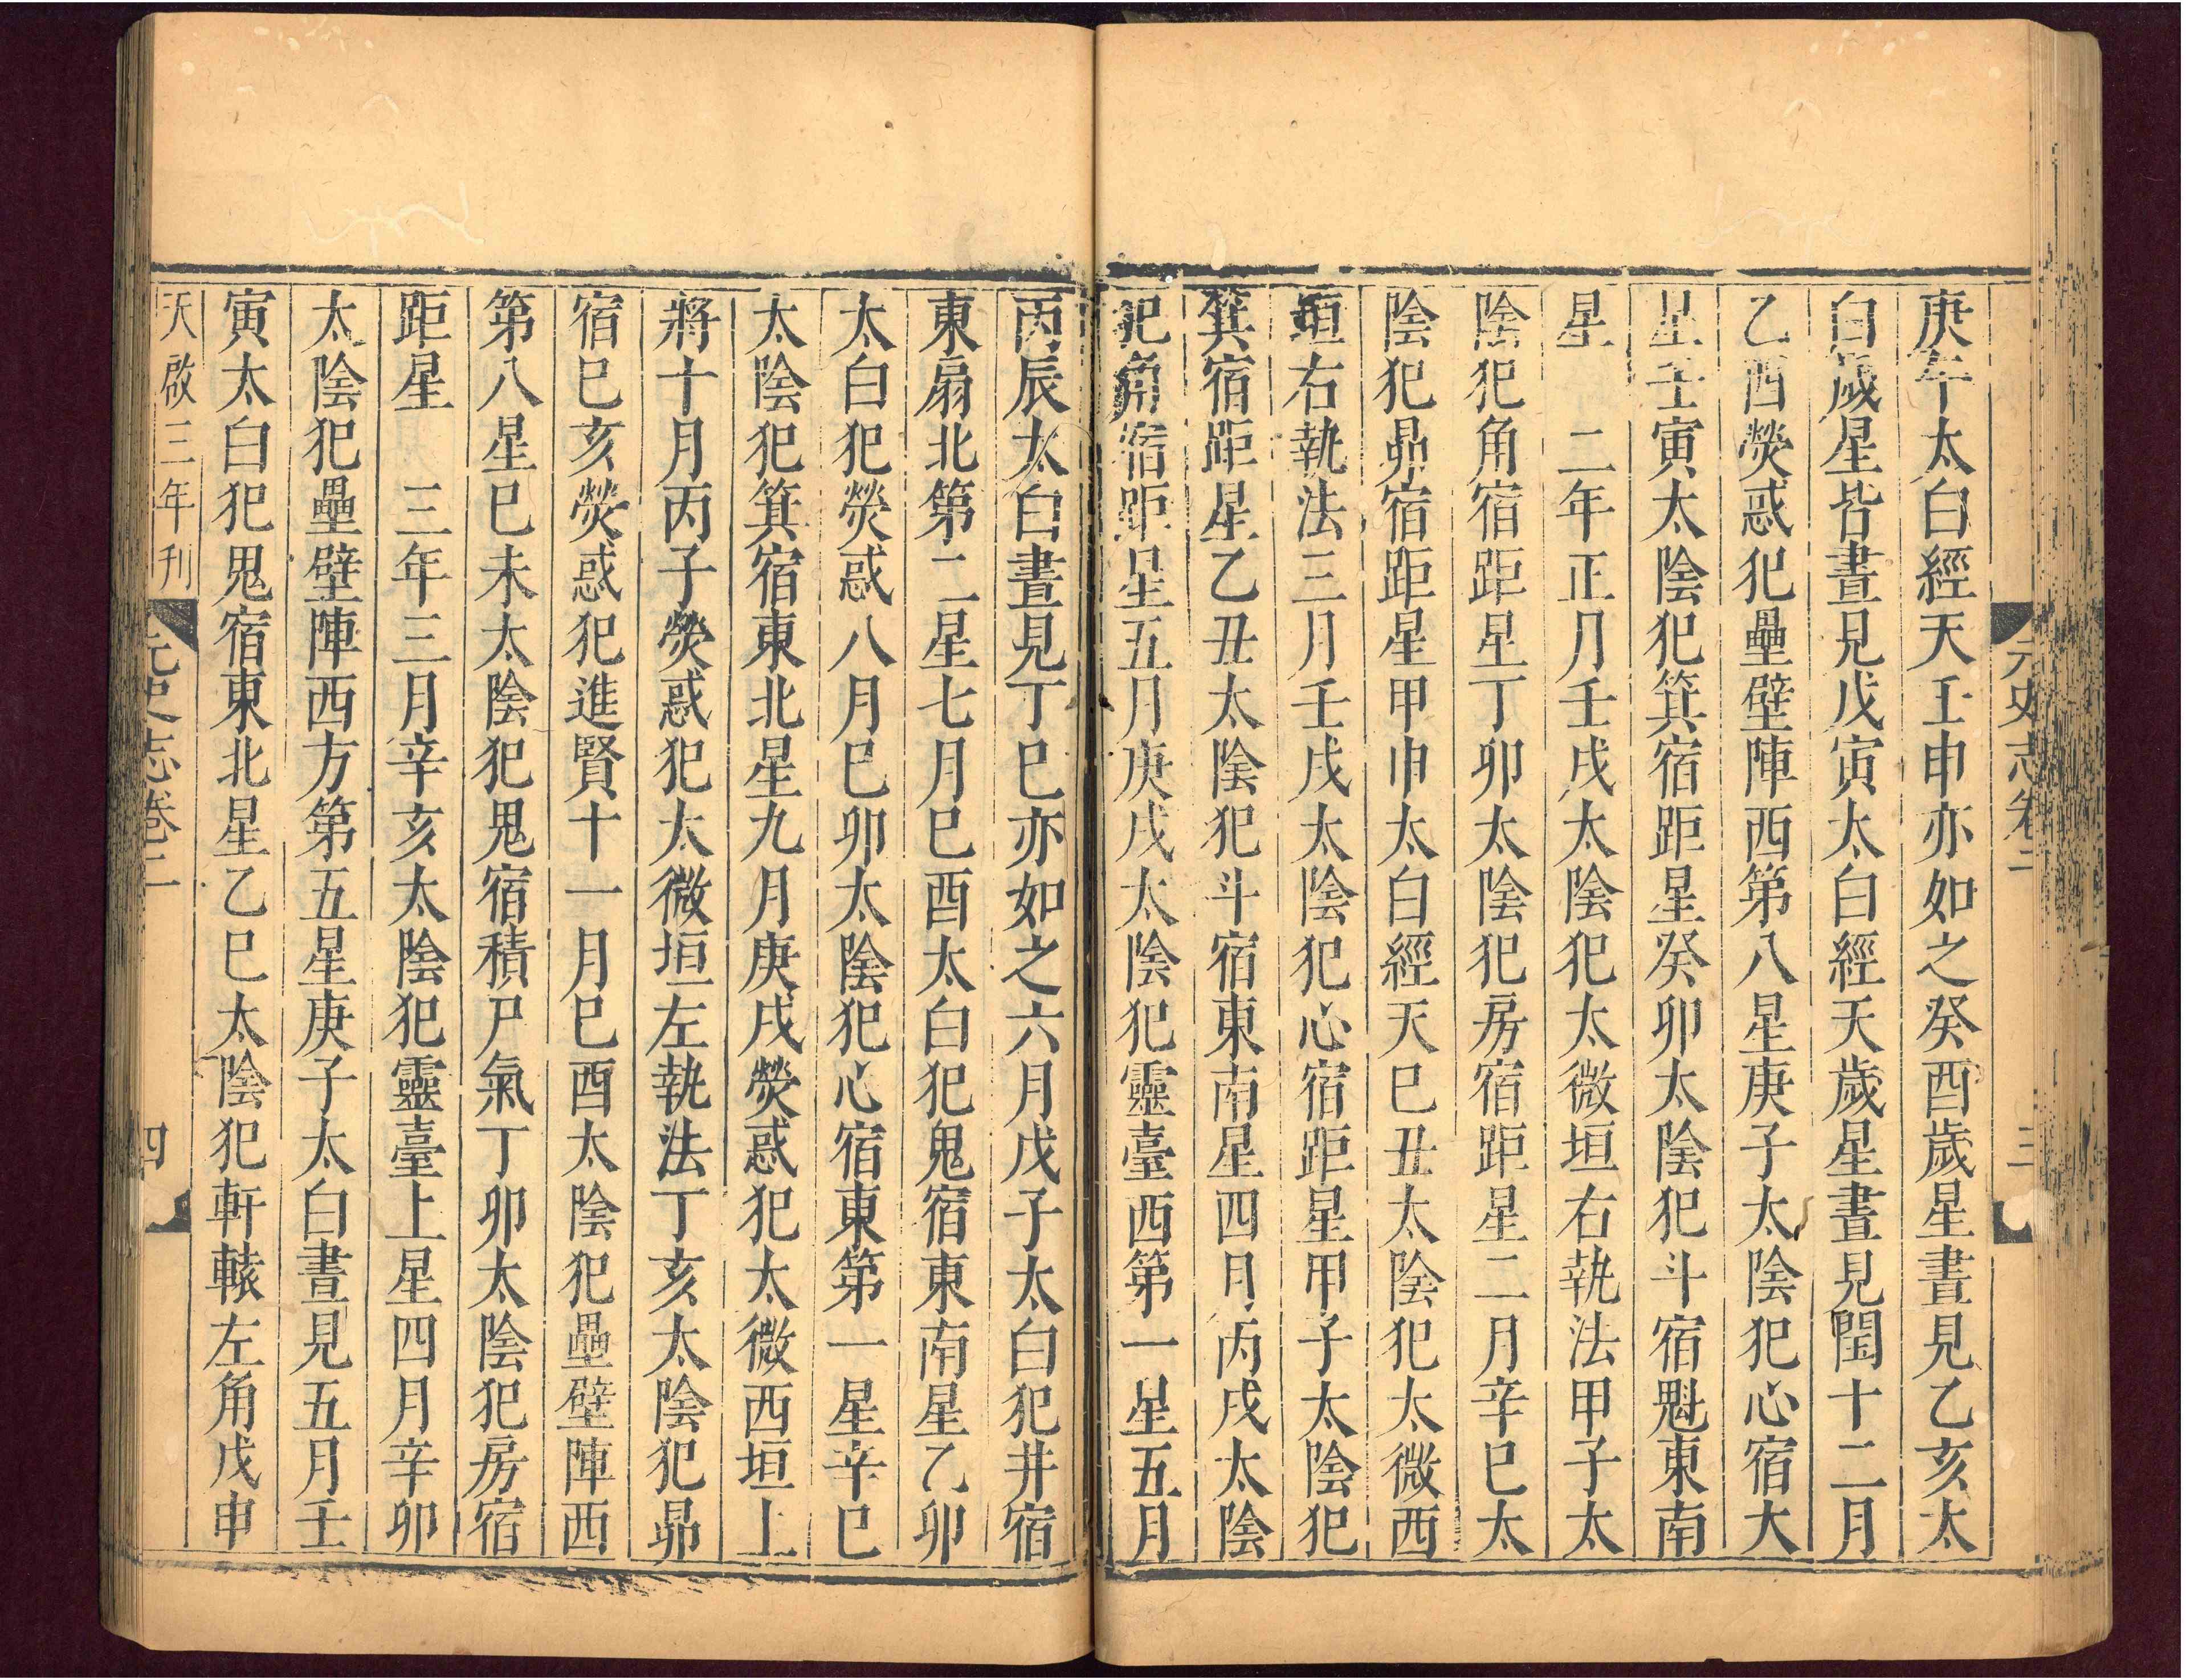 元史志卷二
三
庚午太白經天壬申亦如之癸酉歲星晝見乙亥太
白歲星皆晝見戊寅太白經天歲星晝見閏十二月
乙酉熒惑犯壘壁陣西第八星庚子太陰犯心宿大
星壬寅太陰犯箕宿距星癸卯太陰犯斗宿魁東南
星　二年正月壬戌太陰犯太微垣右執法甲子太
陰犯角宿距星丁卯太陰犯房宿距星二月辛巳太
陰犯昴宿距星甲申太白經天巳丑太陰犯太微西
垣右執法三月壬戌太陰犯心宿距星甲子太陰犯
箕宿距星乙丑太陰犯斗宿東南星四月丙戌太陰
犯角宿距星五月庚戌太陰犯靈臺西第一星五月
丙辰太白晝見丁巳亦如之六月戊子太白犯井宿
東扇北第二星七月巳酉太白犯鬼宿東南星乙卯
太白犯熒惑八月巳卯太陰犯心宿東第一星辛巳
太陰犯箕宿東北星九月庚戌熒惑犯太微西垣上
將十月丙子熒惑犯太微垣左執法丁亥太陰犯昴
宿巳亥熒惑犯進賢十一月巳酉太陰犯壘壁陣西
第八星巳未太陰犯鬼宿積尸氣丁卯太陰犯房宿
距星　三年三月辛亥太陰犯靈臺上星四月辛卯
太陰犯壘壁陣西方第五星庚子太白晝見五月壬
寅太白犯鬼宿東北星乙巳太陰犯軒轅左角戊申
天啟三年刊
元史志卷二
四